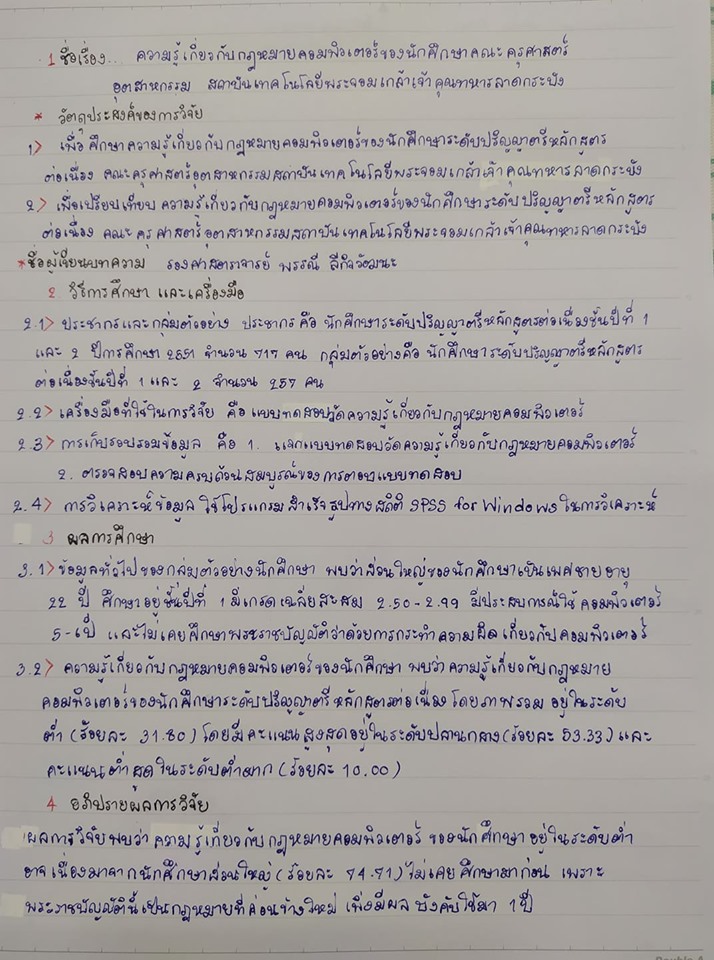 1 ชื่อเรื่อง... ความรู้เกี่ยวกับกฎหมายคอมพิวเตอร์ของนักศึกษาคณะครุศาสตร์
อุตสาหกรรม สถาบันเทคโนโลยีพระจอมเกล้าเจ้าคุณทหารลาดกระบัง
* วัตถุประสงค์ของการวิจัย
1> เพื่อศึกษาความรู้เกี่ยวกับกฎหมายคอมพิวเตอร์ของนักศึกษาระดับปริญญาตรีหลักสูตร
ต่อเนื่อง คณะครุศาสตร์อุตสาหกรรมสถาบันเทคโนโลยีพระจอมเกล้าเจ้าคุณทหารลาดกระบัง
2> เพื่อเปรียบเทียบความรู้เกี่ยวกับกฎหมายคอมพิวเตอร์ของนักศึกษาระดับปริญญาตรีหลักสูตร
ต่อเนื่อง คณะครุศาสตร์อุตสาหกรรมสถาบันเทคโนโลยีพระจอมเกล้าเจ้าคุณทหารลาดกระบัง
*ชื่อผู้เขียนบทความ รองศาสตราจารย์ พรรณี ลีกิจวัฒนะ
2 วิธีการศึกษา และเครื่องมือ
2.1> ประชากรและกลุ่มตัวอย่าง ประชากรคือ นักศึกษาระดับปริญญาตรีหลักสูตรต่อเนื่องชั้นปีที่ 1
และ 2 ปีการศึกษา 2551 จำนวน 717 คน กลุ่มตัวอย่างคือ นักศึกษาระดับปริญญาตรีหลักสูตร
ต่อเนื่องชั้นปีที่ 1 และ 2 จำนวน 257 คน
2.2> เครื่องมือที่ใช้ในการวิจัย คือแบบทดสอบวัดความรู้เกี่ยวกับกฎหมายคอมพิวเตอร์
2.3> การเก็บรวบรวมข้อมูล คือ 1. แจกแบบทดสอบวัดความรู้เกี่ยวกับกฎหมายคอมพิวเตอร์
2. ตรวจสอบความครบถ้วนสมบูรณ์ของการตอบแบบทดสอบ
2.4> การวิเคราะห์ข้อมูล ใช้โปรแกรมสำเร็จรูปทางสถิติ SPSS for Windows ในการวิเคราะห์
3 ผลการศึกษา
3.1> ข้อมูลทั่วไปของกลุ่มตัวอย่างนักศึกษา พบว่าส่วนใหญ่ของนักศึกษาเป็นเพศชายอายุ
22 ปี ศึกษาอยู่ชั้นปีที่ 1 มีเกรดเฉลี่ยสะสม 2.50-2.99 มีประสบการณ์ใช้คอมพิวเตอร์
และไม่เคยศึกษาพระราชบัญญัติว่าด้วยการกระทำความผิดเกี่ยวกับคอมพิวเตอร์
3.2> ความรู้เกี่ยวกับกฎหมายคอมพิวเตอร์ของนักศึกษา พบว่าความรู้เกี่ยวกับกฎหมาย
คอมพิวเตอร์ของนักศึกษาระดับปริญญาตรีหลักสูตรต่อเนื่อง โดยภาพรวม อยู่ในระดับ
ต่ำ (ร้อยละ 31.80) โดยมีคะแนนสูงสุดอยู่ในระดับปลานกลาง (ร้อยละ 53.33) และ
คะแนนต่ำสุดในระดับต่ำมาก (ร้อยละ 10.00)
4 อภิปรายผลการวิจัย
ผลการวิจัยพบว่า ความรู้เกี่ยวกับกฎหมายคอมพิวเตอร์ ของนักศึกษาอยู่ในระดับต่ำ
อาจเนื่องมาจากนักศึกษาส่วนใหญ่ (ร้อยละ 74.71) ไม่เคยศึกษามาก่อน เพราะ
พระราชบัญญัตินี้เป็นกฎหมายที่ค่อนข้างใหม่ เพิ่งมีผลบังคับใช้มา 1 ปี